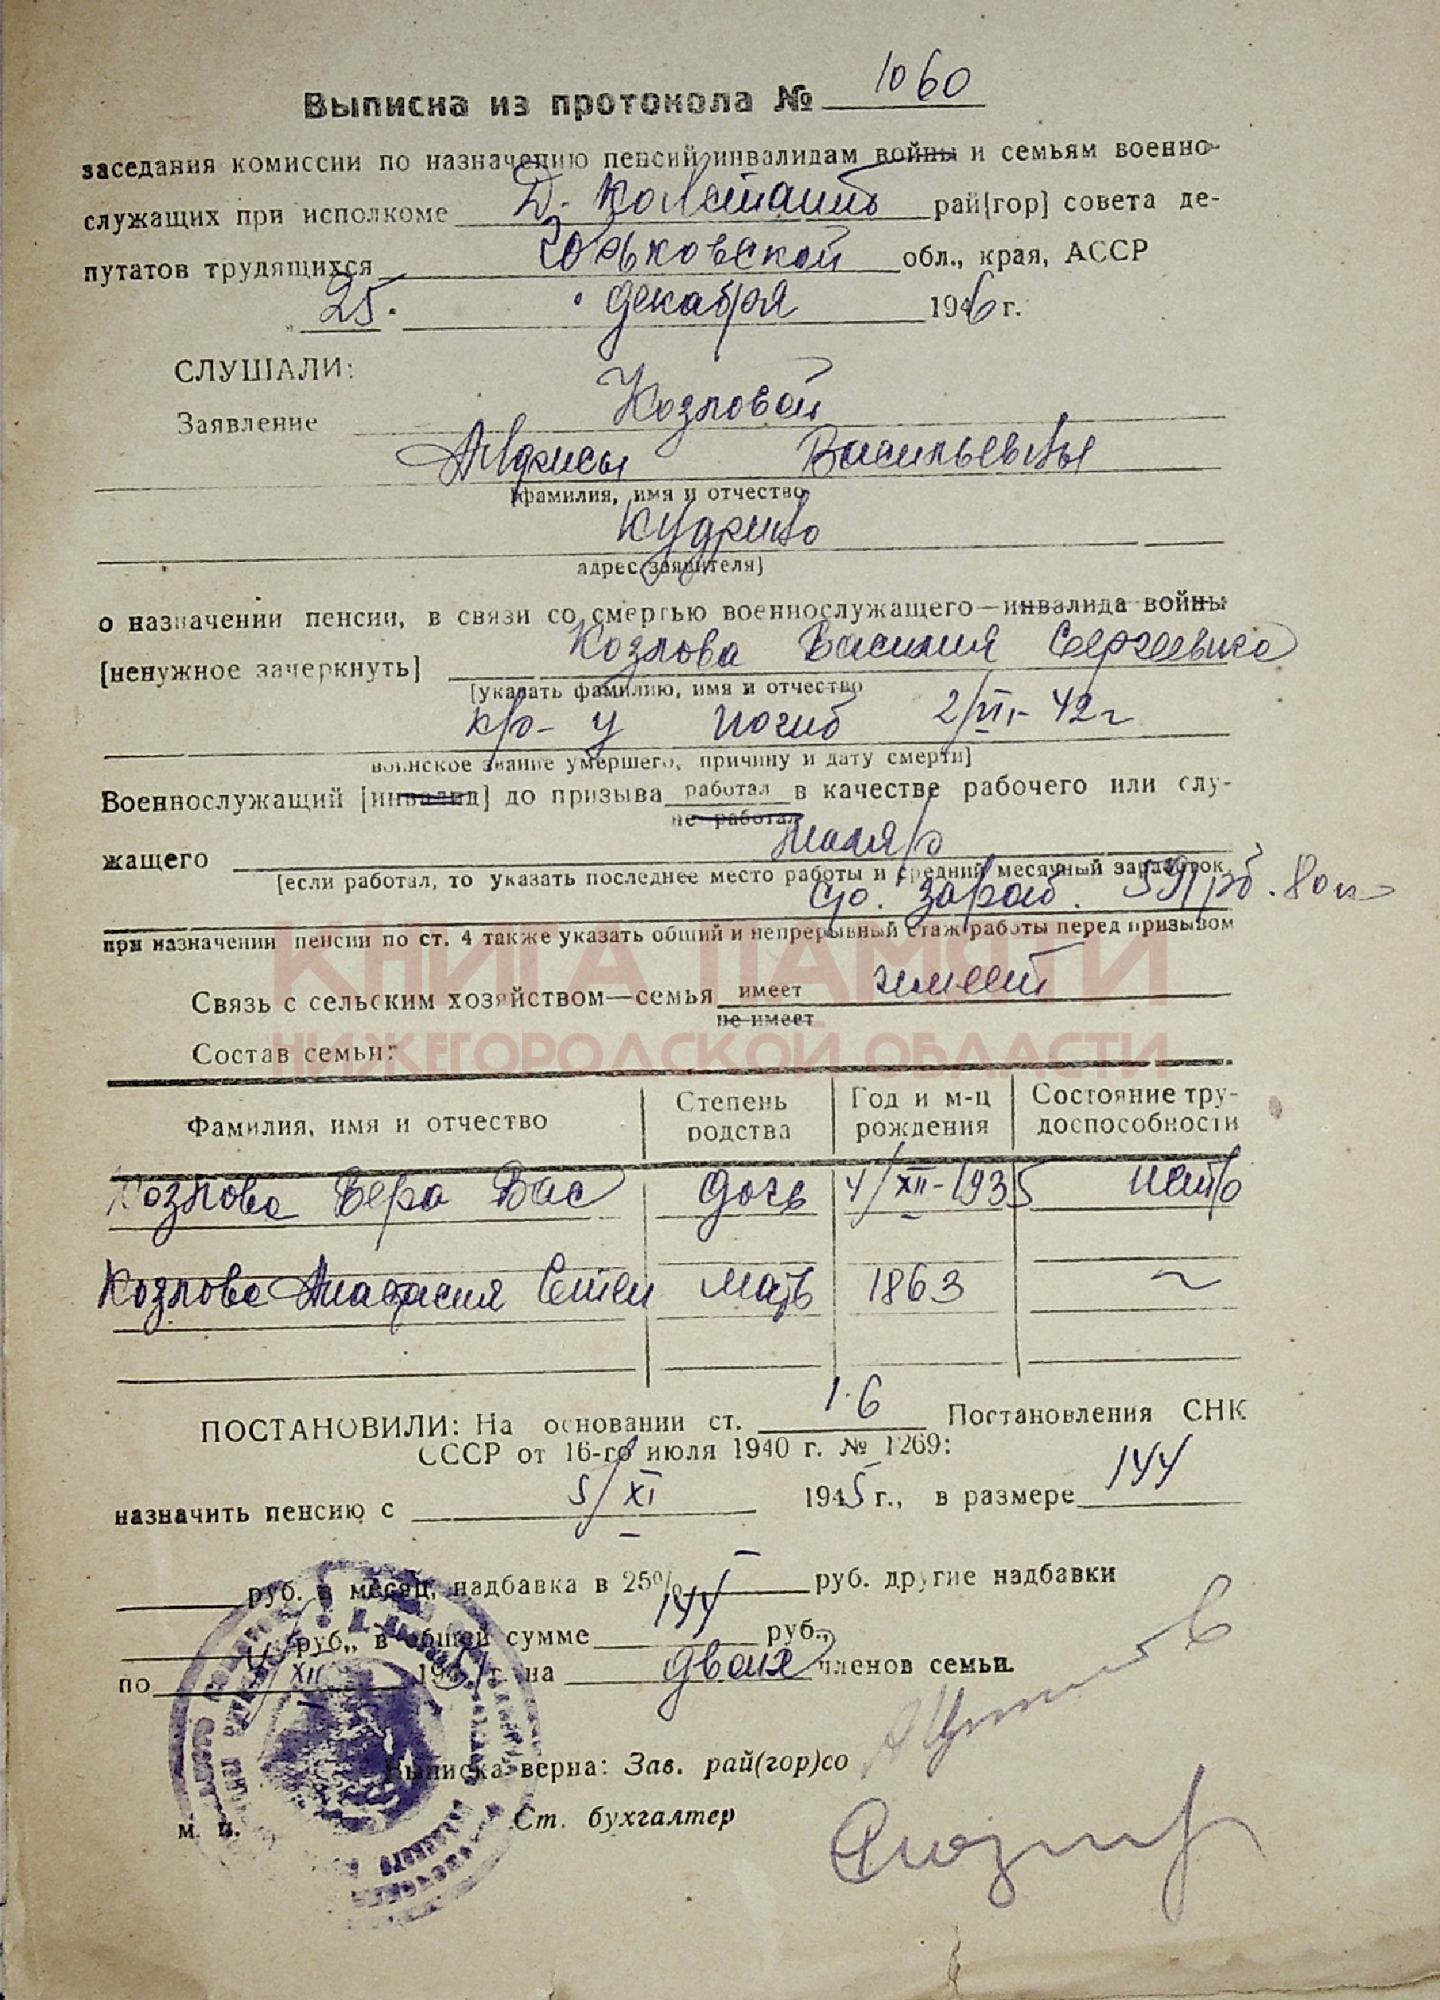 Выписка из протокола № 1060
заседания комиссии по назначению пенсий инвалидам войны и семьям военно-
служащих при исполкоме Д. Константин рай[гор] совета де-
путатов трудящихся Горьковской обл., края, АССР
25. декабря 1946 г.
СЛУШАЛИ:
Заявление Козловой
Анфисы Васильевны
[фамилия, имя и отчество
Кудрино
адрес заявителя]
о назначении пенсии, в связи со смертью военнослужащего—инвалида войны
[ненужное зачеркнуть] Козлова Василия Сергеевича
[указать фамилию, имя и отчество
кр-у погиб 2/VII-42 г
воинское звание умершего, причину и дату смерти]
Военнослужащий [инвалид] до призыва работал в качестве рабочего или слу-
не работал
жащего маляр
[если работал, то указать последнее место работы и средний месячный заработок,
ср. зараб. 591 рб. 80 к
при назначении пенсии по ст. 4 также указать общий и непрерывный стаж работы перед призывом
КНИГА ПАМЯТИ
Связь с сельским хозяйством—семья имеет имеет
не имеет
НИЖЕГОРОДСКОЙ ОБЛАСТИ
Состав семьи:
Фамилия, имя и отчество Степень родства Год и м-ц рождения Состояние тру-доспособности
Козлова Вера Вас дочь 4/XII-1935 нетр
Козлова Анастасия Степ мать 1863 ~
ПОСТАНОВИЛИ: На основании ст. 1·6 Постановления СНК
СССР от 16-го июля 1940 г. № 1269:
назначить пенсию с 5/XI 1945 г., в размере 144
руб. в месяц, надбавка в 25% — руб. другие надбавки
руб., в общей сумме 144 руб.,
по 4/XII 1951 г. на двоих членов семьи.
Выписка верна: Зав. рай(гор)со
м. п. Ст. бухгалтер